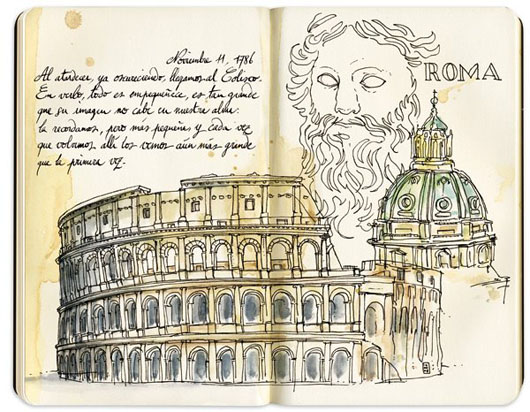 Noviembre 11, 1786
Al atardecer, ya oscureciendo, llegamos al Coliseo.
En verlo, todo es empequeñece, es tan grande
que su imagen no cabe en nuestra alma.
la recordamos, pero mas pequeña y cada vez
que volvamos allí los vemos aún más grande
que la primera vez.
ROMA